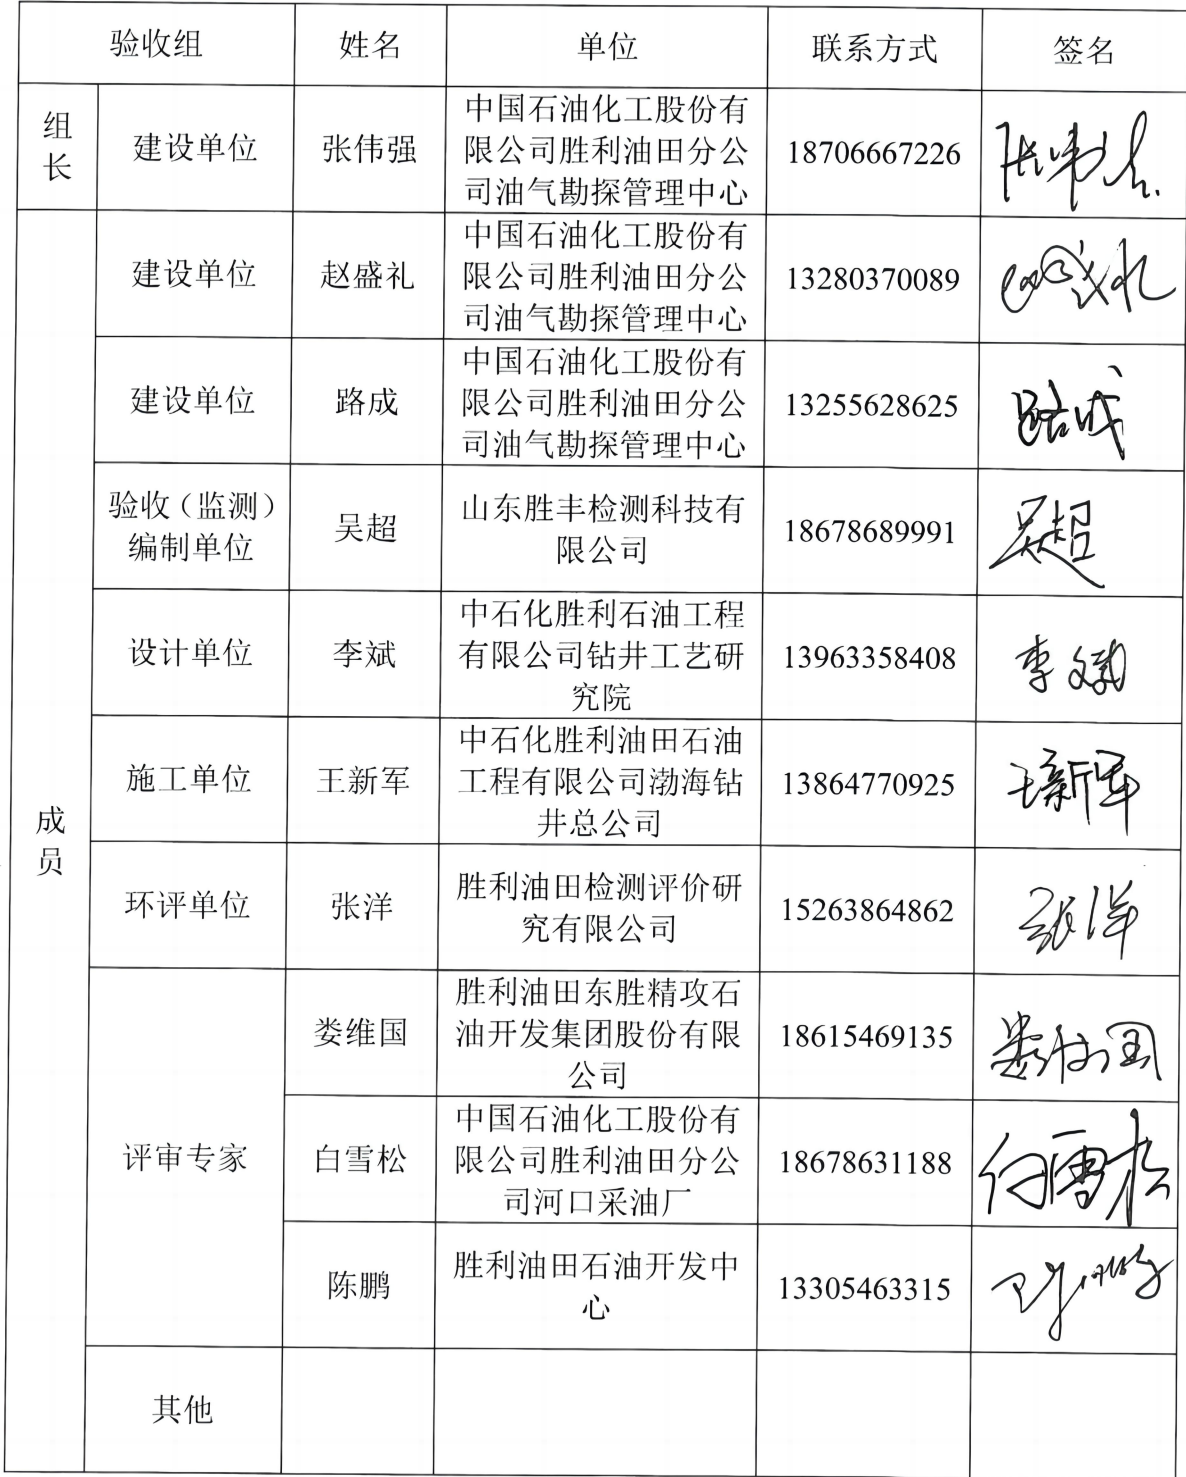 验收组 姓名 单位 联系方式 签名
组长 建设单位 张伟强 中国石油化工股份有
限公司胜利油田分公
司油气勘探管理中心 18706667226 张伟强
成员 建设单位 赵盛礼 中国石油化工股份有
限公司胜利油田分公
司油气勘探管理中心 13280370089 赵盛礼
建设单位 路成 中国石油化工股份有
限公司胜利油田分公
司油气勘探管理中心 13255628625 路成
验收（监测）
编制单位 吴超 山东胜丰检测科技有
限公司 18678689991 吴超
设计单位 李斌 中石化胜利石油工程
有限公司钻井工艺研
究院 13963358408 李斌
施工单位 王新军 中石化胜利油田石油
工程有限公司渤海钻
井总公司 13864770925 王新军
环评单位 张洋 胜利油田检测评价研
究有限公司 15263864862 张洋
评审专家 娄维国 胜利油田东胜精攻石
油开发集团股份有限
公司 18615469135 娄维国
白雪松 中国石油化工股份有
限公司胜利油田分公
司河口采油厂 18678631188 白雪松
陈鹏 胜利油田石油开发中
心 13305463315
其他